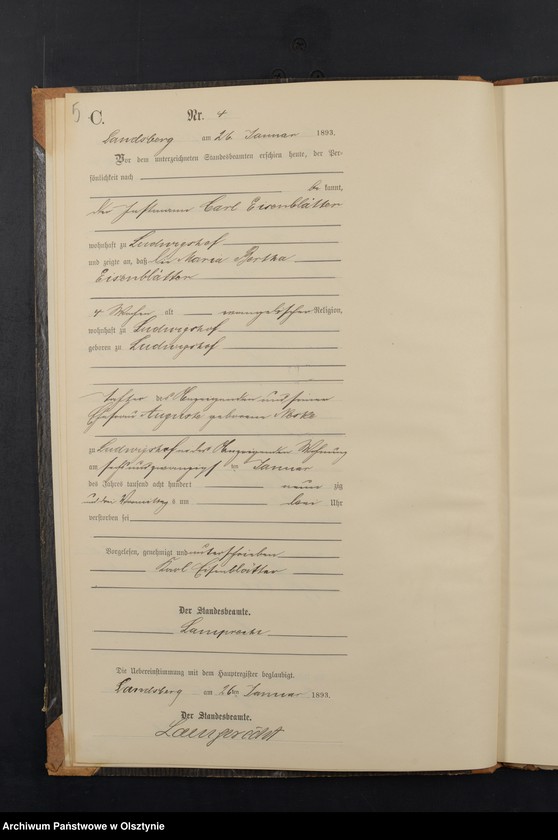 5 C. Nr. 4
Landsberg am 26 Januar 1893.
Vor dem unterzeichneten Standesbeamten erschien heute, der Per-
sönlichkeit nach
be kannt,
der Instmann Carl Eisenblätter
wohnhaft zu Ludwigshof
und zeigte an, daß die Maria Bertha
Eisenblätter
4 Wochen alt evangelischer Religion,
wohnhaft zu Ludwigshof
geboren zu Ludwigshof
Tochter des Anzeigenden und seiner
Ehefrau Auguste geborene
zu Ludwigshof in des Anzeigenden Wohnung
am sechsundzwanzigsten Januar
des Jahres tausend acht hundert neun zig
und drei Vormittags um Uhr
verstorben sei
Vorgelesen, genehmigt und unterschrieben
Karl Eisenblätter
Der Standesbeamte.
Lamprecht
Die Uebereinstimmung mit dem Hauptregister beglaubigt.
Landsberg am 26ten Januar 1893.
Der Standesbeamte.
Lamprecht
Archiwum Państwowe w Olsztynie